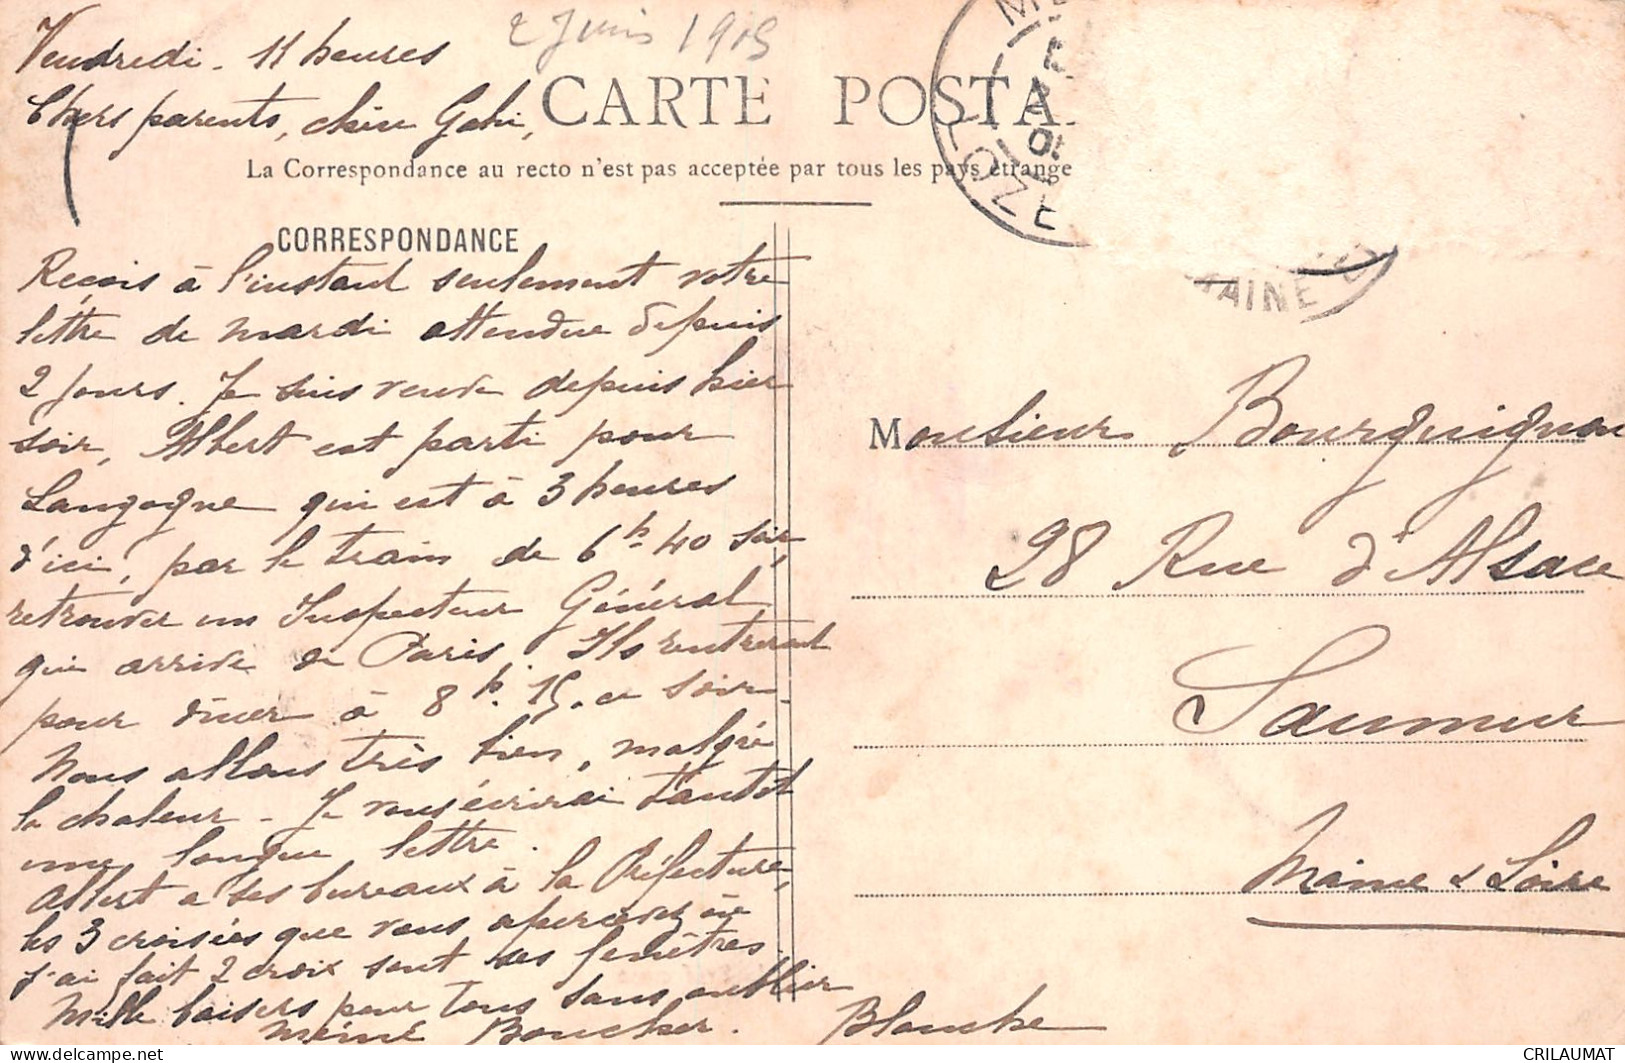 2 Juin 1905
Vendredi - 11 heures
Chers parents, chère Gabi,
CARTE POSTA
La Correspondance au recto n'est pas acceptée par tous les pays étrange
CORRESPONDANCE
Reçois à l'instant seulement votre
lettre de mardi attendue depuis
2 jours. Je suis veuve depuis hier
soir, Albert est parti pour
Langogne qui est à 3 heures
d'ici, par le train de 6h 40 soir,
retrouver un Inspecteur Général
qui arrive de Paris. Ils rentreront
pour dîner à 8h.15. ce soir.
Nous allons très bien, malgré
la chaleur - Je vous écrirai tantôt
une longue lettre.
Albert a ses bureaux à la Préfecture,
les 3 croisées que vous apercevez où
j'ai fait 2 croix sont ses fenêtres.
Mille baisers pour tous sans oublier
mémé Boucher. Blanche
LOZÈRE
MAINE
Monsieur Bourguignon
28 Rue d'Alsace
Saumur
Maine & Loire
CRILAUMAT